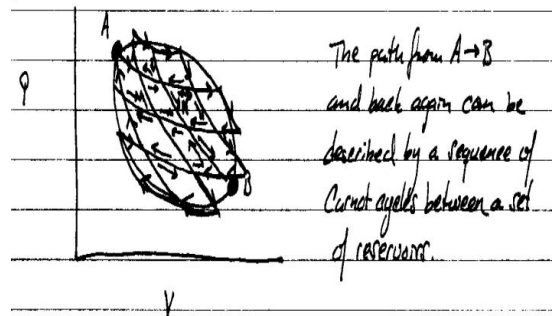 A
P
B
V
The path from A→B
and back again can be
described by a sequence of
Carnot cycles between a set
of reservoirs.